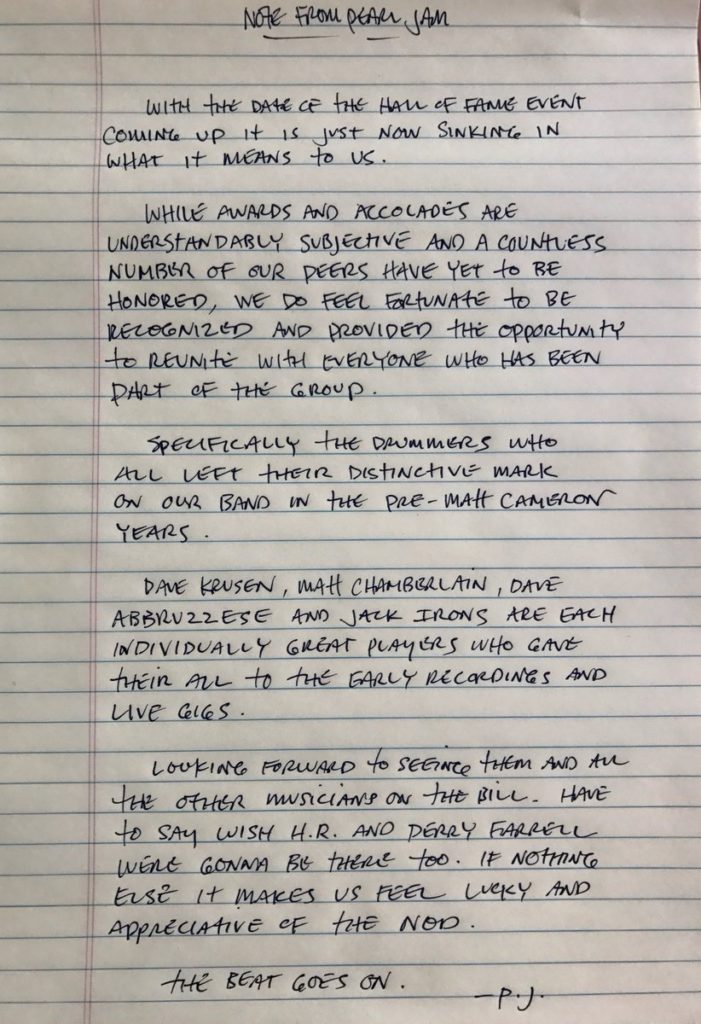 NOTE FROM PEARL JAM
WITH THE DATE OF THE HALL OF FAME EVENT
COMING UP IT IS JUST NOW SINKING IN
WHAT IT MEANS TO US.
WHILE AWARDS AND ACCOLADES ARE
UNDERSTANDABLY SUBJECTIVE AND A COUNTLESS
NUMBER OF OUR PEERS HAVE YET TO BE
HONORED, WE DO FEEL FORTUNATE TO BE
RECOGNIZED AND PROVIDED THE OPPORTUNITY
TO REUNITE WITH EVERYONE WHO HAS BEEN
PART OF THE GROUP.
SPECIFICALLY THE DRUMMERS WHO
ALL LEFT THEIR DISTINCTIVE MARK
ON OUR BAND IN THE PRE-MATT CAMERON
YEARS.
DAVE KRUSEN, MATT CHAMBERLAIN, DAVE
ABBRUZZESE AND JACK IRONS ARE EACH
INDIVIDUALLY GREAT PLAYERS WHO GAVE
THEIR ALL TO THE EARLY RECORDINGS AND
LIVE GIGS.
LOOKING FORWARD TO SEEING THEM AND ALL
THE OTHER MUSICIANS ON THE BILL. HAVE
TO SAY WISH H.R. AND PERRY FARRELL
WERE GONNA BE THERE TOO. IF NOTHING
ELSE IT MAKES US FEEL LUCKY AND
APPRECIATIVE OF THE NOD.
THE BEAT GOES ON.
—P.J.